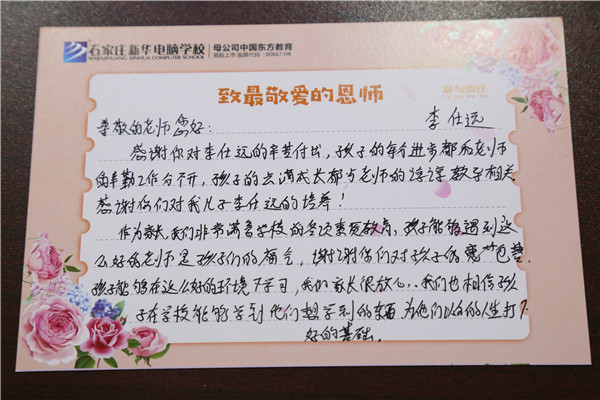 石家庄新华电脑学校
SHIJIAZHUANG XINHUA COMPUTER SCHOOL
母公司中国东方教育
港股上市 股票代码：00667.HK
致最敬爱的恩师
尊敬的老师您好：
李仕远
感谢你对李仕远的辛苦付出，孩子的每个进步都和老师
的辛勤工作分不开，孩子的点滴成长都与老师的谆谆教学相关
感谢你们对我儿子李仕远的培养！
作为家长我们非常满意学校的各次表现教育，孩子能够遇到这
么好的老师是孩子们的福气，谢谢你们对孩子的宽 包容
孩子能够在这么好的环境下学习，我们家长很放心，我们也相信孩
子在学校能够学到他们想学到的东西，为他们以后的人生打下
好的基础.